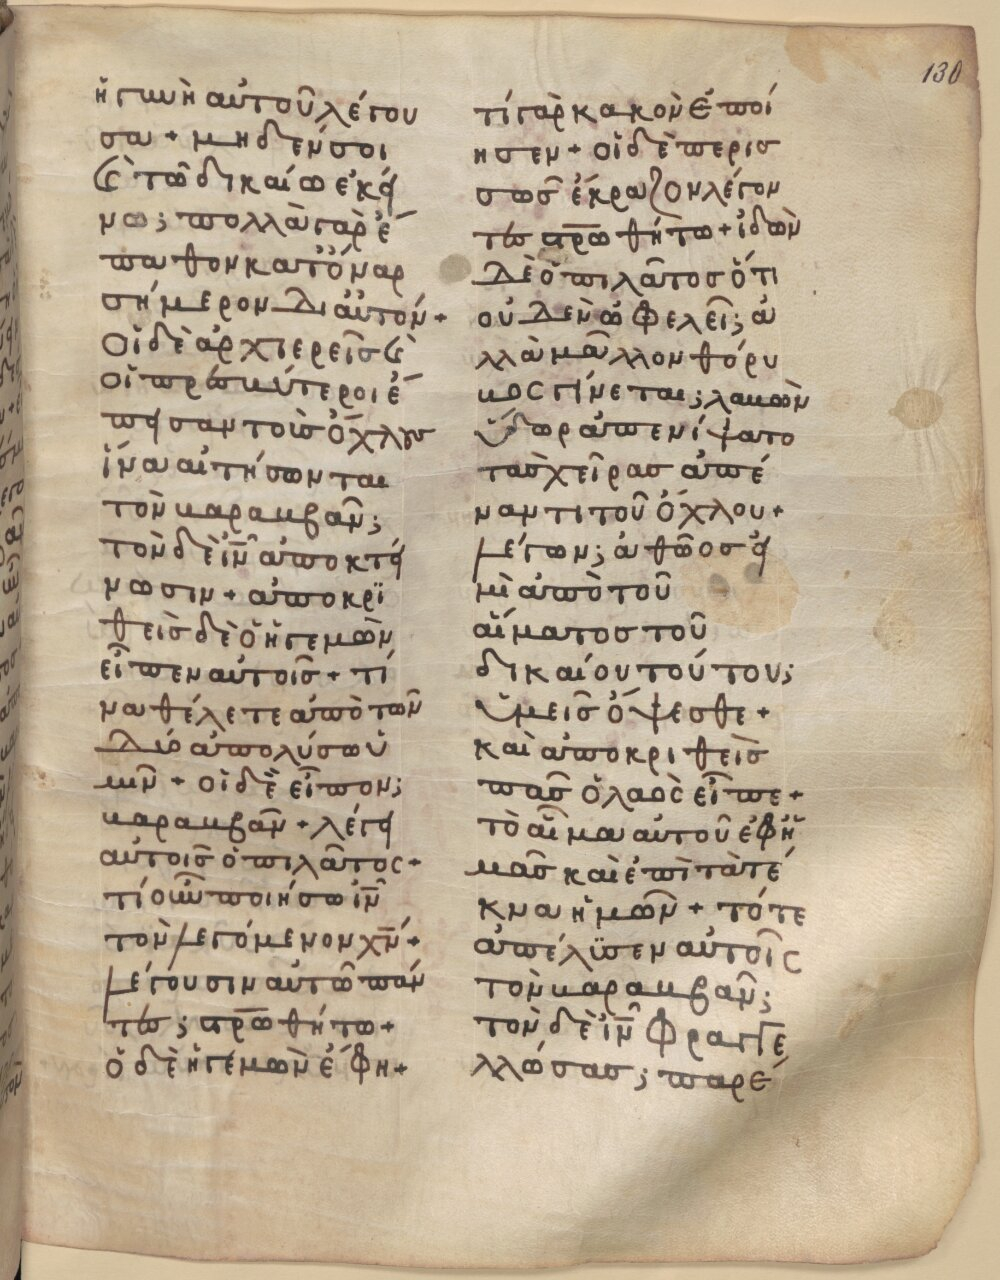 130
ἡ γυνὴ αὐτοῦ λέγου
σα + μηδέν σοι
ϗ τῶ δικαίω ἐκεί
νω; πολλὰ γὰρ ἔ
παθον κατ ὄναρ
σήμερον δι αὐτόν +
Οἱ δὲ ἀρχιερεῖς ϗ
οἱ πρεσβύτεροι ἔ
πεισαν τοὺς ὄχλους
ἵνα αἰτήσωνται
τὸν βαραββᾶν;
τὸν δὲ ἰν̅ ἀποκτεί
νωσιν + ἀποκρι
θεὶς δὲ ὁ ἡγεμὼν
εἶπεν αὐτοῖς + τί
να θέλετε ἀπὸ τῶν
δύο ἀπολύσω ὑ
μῖν + οἱ δὲ εἶπον;
βαραββᾶν + λέγει
αὐτοῖς ὁ πιλᾶτος +
τί οὖν ποιήσω ἰν̅
τὸν λεγόμενον χν̅ +
λέγουσιν αὐτῶ πάν
τες; στρωθήτω +
ὁ δὲ ἡγεμὼν ἔφη +
τί γὰρ κακὸν ἐποί
ησεν + οἱ δὲ περισ
σῶς ἔκραζον λέγον
τες στρωθήτω + ἰδὼν
δὲ ὁ πιλᾶτος ὅτι
οὐδὲν ὠφελεῖ; ἀ
λλὰ μᾶλλον θόρυ
βος γίνεται; λαβὼν
ὕδωρ ἀπενίψατο
τὰς χεῖρας ἀπέ
ναντι τοῦ ὄχλου +
λέγων; ἀθῶος εἰ
μὶ ἀπὸ τοῦ
αἵματος τοῦ
δικαίου τούτου;
ὑμεῖς ὄψεσθε +
καὶ ἀποκριθεὶς
πᾶς ὁ λαὸς εἶπε +
τὸ αἷμα αὐτοῦ ἐφ ἡ
μᾶς καὶ ἐπὶ τὰ τέ
κνα ἡμῶν + τότε
ἀπέλυσεν αὐτοῖς
τὸν βαραββᾶν;
τὸν δὲ ἰν̅ φραγγε
λλώσας; παρέ